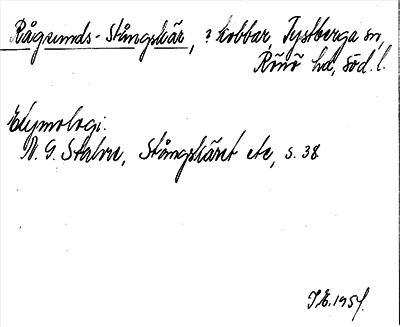 Rågsunds-Stångskär, ? kobbar, Tystberga sn,
Rönö hd, Söd. l.
Etymologi:
N. G. Stahre, Stångskäret etc, s. 38
I.E. 1954.